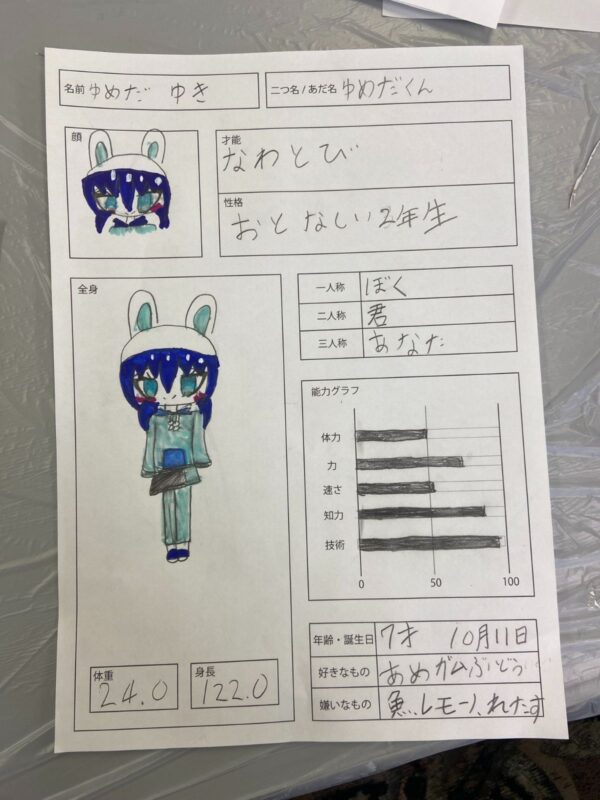 名前 ゆめだ ゆき
二つ名/あだ名 ゆめだくん
顔
才能
なわとび
性格
おとなしい2年生
全身
一人称 ぼく
二人称 君
三人称 あなた
能力グラフ
体力
力
速さ
知力
技術
0 50 100
体重
24.0
身長
122.0
年齢・誕生日 7才 10月11日
好きなもの あめガムぶどう
嫌いなもの 魚、レモン、れたす